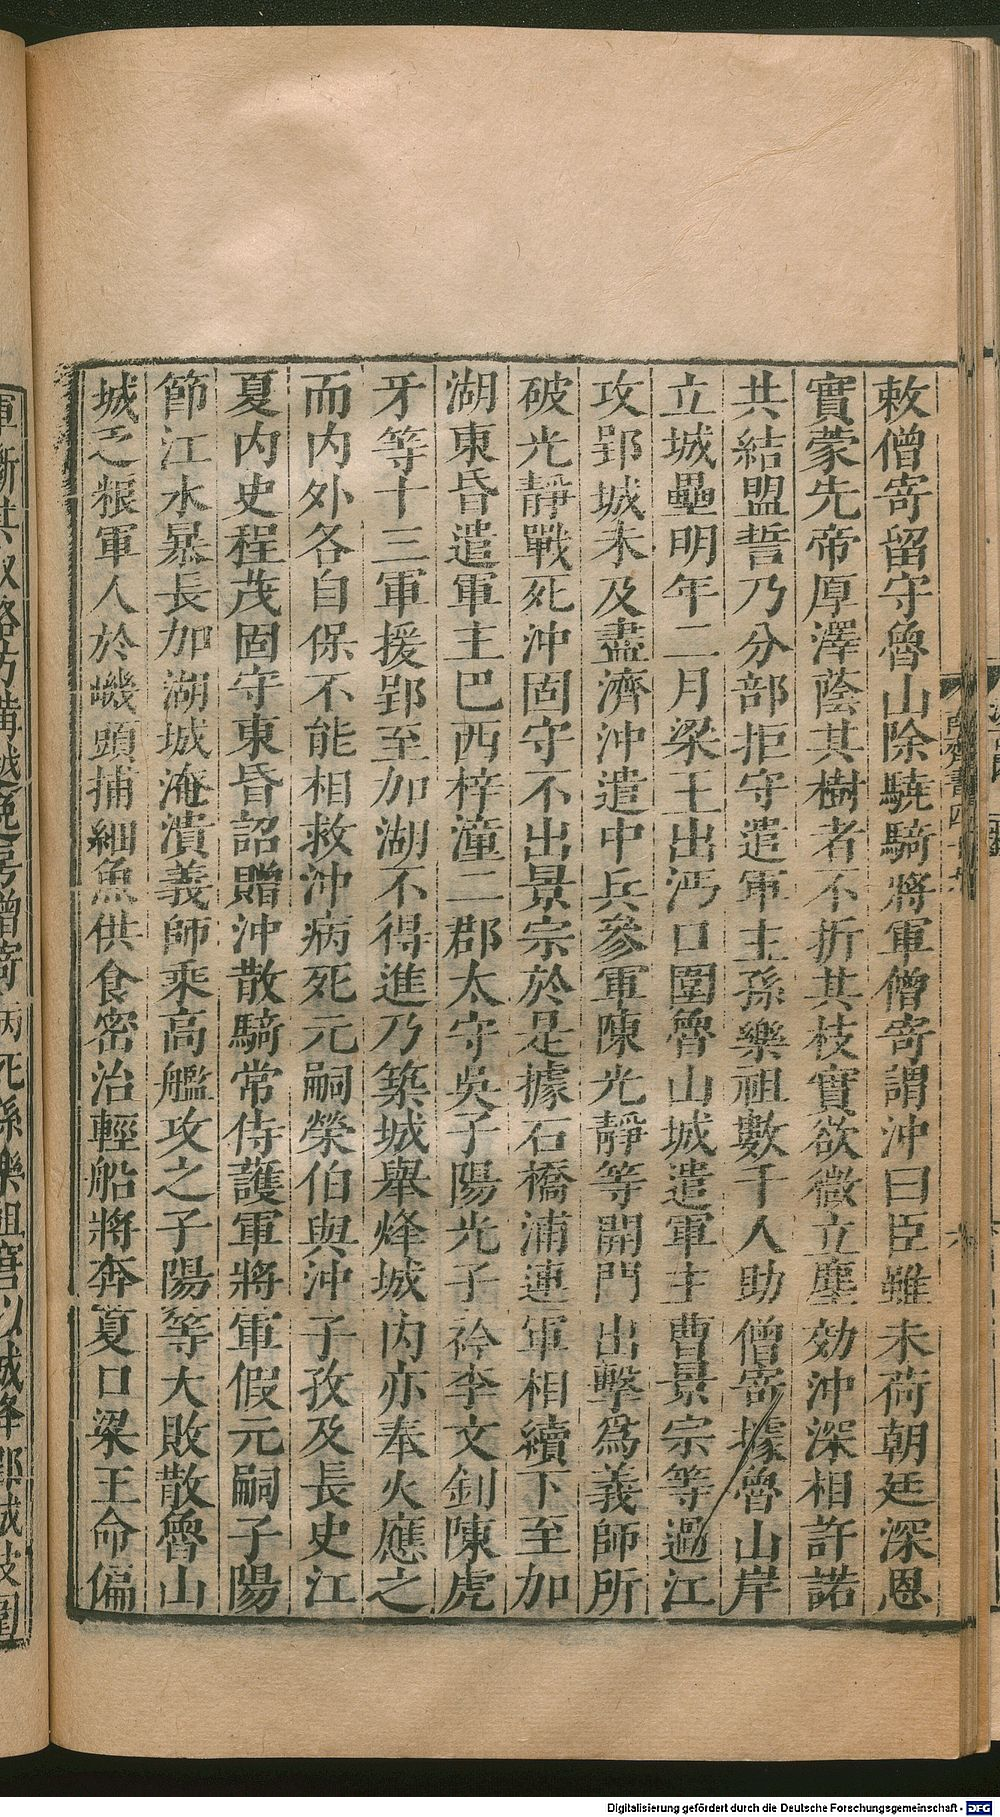 敕僧寄留守魯山除驍騎將軍僧寄謂沖曰臣雖未荷朝廷深恩
實蒙先帝厚澤蔭其樹者不折其枝實欲微立塵効沖深相許諾
共結盟誓乃分部拒守遣軍主孫樂祖數千人助僧寄據魯山岸
立城壘明年二月梁王出沔口圍魯山城遣軍主曹景宗等過江
攻郢城未及盡濟沖遣中兵參軍陳光靜等開門出擊爲義師所
破光靜戰死沖固守不出景宗於是據石橋浦連軍相續下至加
湖東昏遣軍主巴西梓潼二郡太守吳子陽光子衿李文釗陳虎
牙等十三軍援郢至加湖不得進乃築城舉烽城內亦奉火應之
而內外各自保不能相救沖病死元嗣榮伯與沖子孜及長史江
夏內史程茂固守東昏詔贈沖散騎常侍護軍將軍假元嗣子陽
節江水暴長加湖城淹漬義師乘高艦攻之子陽等大敗散魯山
城乏粮軍人於磯頭捕細魚供食密治輕船將奔夏口梁王命偏
Digitalisierung gefördert durch die Deutsche Forschungsgemeinschaft - DFG